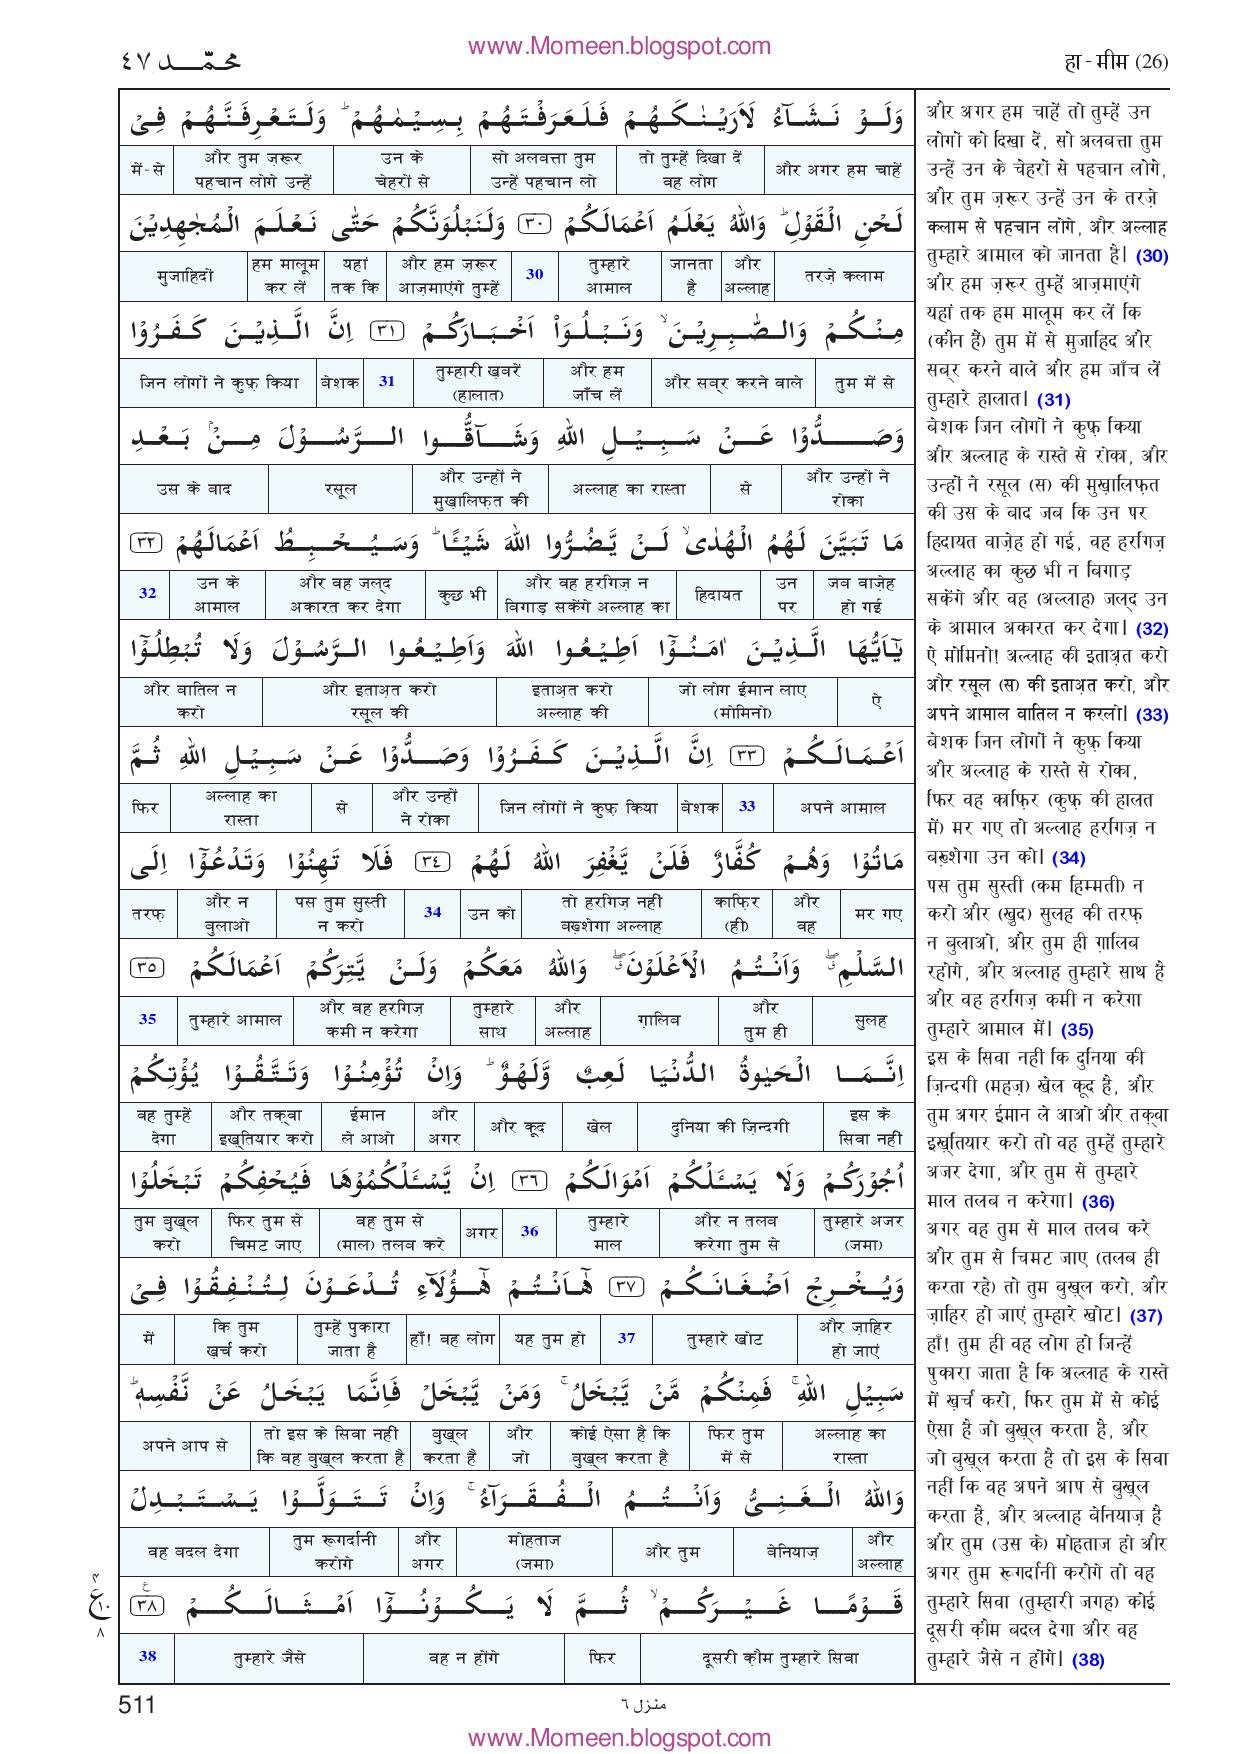 www.Momeen.blogspot.com
محمّد ٤٧
हा - मीम (26)
وَلَوْ نَشَآءُ لَاَرَيْنٰكَهُمْ فَلَعَرَفْتَهُمْ بِسِيْمٰىهُمْ ؕ وَلَتَعْرِفَنَّهُمْ فِىْ
और अगर हम चाहें तो तुम्हें दिखा दें वह लोग सो अलबत्ता तुम उन्हें पहचान लो उन के चेहरों से और तुम ज़रूर पहचान लोगे उन्हें में-से
لَحْنِ الْقَوْلِ ؕ وَاللّٰهُ يَعْلَمُ اَعْمَالَكُمْ ٣٠ وَلَنَبْلُوَنَّكُمْ حَتّٰى نَعْلَمَ الْمُجٰهِدِيْنَ
तरज़े कलाम और अल्लाह जानता है तुम्हारे आमाल 30 और हम ज़रूर आज़माएंगे तुम्हें यहां तक कि हम मालूम कर लें मुजाहिदों
مِنْكُمْ وَالصّٰبِرِيْنَ ۙ وَنَبْلُوَا۟ اَخْبَارَكُمْ ٣١ اِنَّ الَّذِيْنَ كَفَرُوْا
तुम में से और सब्र करने वाले और हम जाँच लें तुम्हारी ख़बरें (हालात) 31 बेशक जिन लोगों ने कुफ़्र किया
وَصَدُّوْا عَنْ سَبِيْلِ اللّٰهِ وَشَآقُّوا الرَّسُوْلَ مِنْۢ بَعْدِ
और उन्हों ने रोका से अल्लाह का रास्ता और उन्हों ने मुख़ालिफ़त की रसूल उस के बाद
مَا تَبَيَّنَ لَهُمُ الْهُدٰى ۙ لَنْ يَّضُرُّوا اللّٰهَ شَيْئًا ؕ وَسَيُحْبِطُ اَعْمَالَهُمْ ٣٢
जब वाज़ेह हो गई उन पर हिदायत और वह हरगिज़ न बिगाड़ सकेंगे अल्लाह का कुछ भी और वह जल्द अकारत कर देगा उन के आमाल 32
يٰٓاَيُّهَا الَّذِيْنَ اٰمَنُوْٓا اَطِيْعُوا اللّٰهَ وَاَطِيْعُوا الرَّسُوْلَ وَلَا تُبْطِلُوْٓا
ऐ जो लोग ईमान लाए (मोमिनो) इताअ़त करो अल्लाह की और इताअ़त करो रसूल की और बातिल न करो
اَعْمَالَكُمْ ٣٣ اِنَّ الَّذِيْنَ كَفَرُوْا وَصَدُّوْا عَنْ سَبِيْلِ اللّٰهِ ثُمَّ
अपने आमाल 33 बेशक जिन लोगों ने कुफ़्र किया और उन्हों ने रोका से अल्लाह का रास्ता फिर
مَاتُوْا وَهُمْ كُفَّارٌ فَلَنْ يَّغْفِرَ اللّٰهُ لَهُمْ ٣٤ فَلَا تَهِنُوْا وَتَدْعُوْٓا اِلَى
मर गए और वह काफ़िर (ही) तो हरगिज़ नहीं बख़्शेगा अल्लाह उन को 34 पस तुम सुस्ती न करो और न बुलाओ तरफ़
السَّلْمِ ۖ وَاَنْتُمُ الْاَعْلَوْنَ ۖ وَاللّٰهُ مَعَكُمْ وَلَنْ يَّتِرَكُمْ اَعْمَالَكُمْ ٣٥
सुलह और तुम ही ग़ालिब और अल्लाह तुम्हारे साथ और वह हरगिज़ कमी न करेगा तुम्हारे आमाल 35
اِنَّمَا الْحَيٰوةُ الدُّنْيَا لَعِبٌ وَّلَهْوٌ ؕ وَاِنْ تُؤْمِنُوْا وَتَتَّقُوْا يُؤْتِكُمْ
इस के सिवा नहीं दुनिया की ज़िन्दगी खेल और कूद और अगर ईमान ले आओ और तक़्वा इख़्तियार करो वह तुम्हें देगा
اُجُوْرَكُمْ وَلَا يَسْـَٔلْكُمْ اَمْوَالَكُمْ ٣٦ اِنْ يَّسْـَٔلْكُمُوْهَا فَيُحْفِكُمْ تَبْخَلُوْا
तुम्हारे अजर (जमा) और न तलब करेगा तुम से तुम्हारे माल 36 अगर वह तुम से (माल) तलब करे फिर तुम से चिमट जाए तुम बुख़्ल करो
وَيُخْرِجْ اَضْغَانَكُمْ ٣٧ هٰٓاَنْتُمْ هٰٓؤُلَآءِ تُدْعَوْنَ لِتُنْفِقُوْا فِىْ
और ज़ाहिर हो जाएं तुम्हारे खोट 37 यह तुम हो हाँ! वह लोग तुम्हें पुकारा जाता है कि तुम ख़र्च करो में
سَبِيْلِ اللّٰهِ ۚ فَمِنْكُمْ مَّنْ يَّبْخَلُ ۚ وَمَنْ يَّبْخَلْ فَاِنَّمَا يَبْخَلُ عَنْ نَّفْسِهٖ ؕ
अल्लाह का रास्ता फिर तुम में से कोई ऐसा है कि बुख़्ल करता है और जो बुख़्ल करता है तो इस के सिवा नहीं कि वह बुख़्ल करता है अपने आप से
وَاللّٰهُ الْغَنِىُّ وَاَنْتُمُ الْفُقَرَآءُ ۚ وَاِنْ تَتَوَلَّوْا يَسْتَبْدِلْ
और अल्लाह बेनियाज़ और तुम मोहताज (जमा) और अगर तुम रूगर्दानी करोगे वह बदल देगा
قَوْمًا غَيْرَكُمْ ۙ ثُمَّ لَا يَكُوْنُوْٓا اَمْثَالَكُمْ ٣٨
दूसरी क़ौम तुम्हारे सिवा फिर वह न होंगे तुम्हारे जैसे 38
٤
ع ١٠
٨
और अगर हम चाहें तो तुम्हें उन
लोगों को दिखा दें, सो अलबत्ता तुम
उन्हें उन के चेहरों से पहचान लोगे,
और तुम ज़रूर उन्हें उन के तरज़े
कलाम से पहचान लोगे, और अल्लाह
तुम्हारे आमाल को जानता है। (30)
और हम ज़रूर तुम्हें आज़माएंगे
यहां तक हम मालूम कर लें कि
(कौन हैं) तुम में से मुजाहिद और
सब्र करने वाले और हम जाँच लें
तुम्हारे हालात। (31)
बेशक जिन लोगों ने कुफ़्र किया
और अल्लाह के रास्ते से रोका, और
उन्हों ने रसूल (स) की मुख़ालिफ़त
की उस के बाद जब कि उन पर
हिदायत वाज़ेह हो गई, वह हरगिज़
अल्लाह का कुछ भी न बिगाड़
सकेंगे और वह (अल्लाह) जल्द उन
के आमाल अकारत कर देगा। (32)
ऐ मोमिनो! अल्लाह की इताअ़त करो
और रसूल (स) की इताअ़त करो, और
अपने आमाल बातिल न करलो। (33)
बेशक जिन लोगों ने कुफ़्र किया
और अल्लाह के रास्ते से रोका,
फिर वह काफ़िर (कुफ़्र की हालत
में) मर गए तो अल्लाह हरगिज़ न
बख़्शेगा उन को। (34)
पस तुम सुस्ती (कम हिम्मती) न
करो और (खुद) सुलह की तरफ़
न बुलाओ, और तुम ही ग़ालिब
रहोगे, और अल्लाह तुम्हारे साथ है
और वह हरगिज़ कमी न करेगा
तुम्हारे आमाल में। (35)
इस के सिवा नहीं कि दुनिया की
ज़िन्दगी (महज़) खेल कूद है, और
तुम अगर ईमान ले आओ और तक़्वा
इख़्तियार करो तो वह तुम्हें तुम्हारे
अजर देगा, और तुम से तुम्हारे
माल तलब न करेगा। (36)
अगर वह तुम से माल तलब करे
और तुम से चिमट जाए (तलब ही
करता रहे) तो तुम बुख़्ल करो, और
ज़ाहिर हो जाएं तुम्हारे खोट। (37)
हाँ! तुम ही वह लोग हो जिन्हें
पुकारा जाता है कि अल्लाह के रास्ते
में ख़र्च करो, फिर तुम में से कोई
ऐसा है जो बुख़्ल करता है, और
जो बुख़्ल करता है तो इस के सिवा
नहीं कि वह अपने आप से बुख़्ल
करता है, और अल्लाह बेनियाज़ है
और तुम (उस के) मोहताज हो और
अगर तुम रूगर्दानी करोगे तो वह
तुम्हारे सिवा (तुम्हारी जगह) कोई
दूसरी क़ौम बदल देगा और वह
तुम्हारे जैसे न होंगे। (38)
511
منزل ٦
www.Momeen.blogspot.com